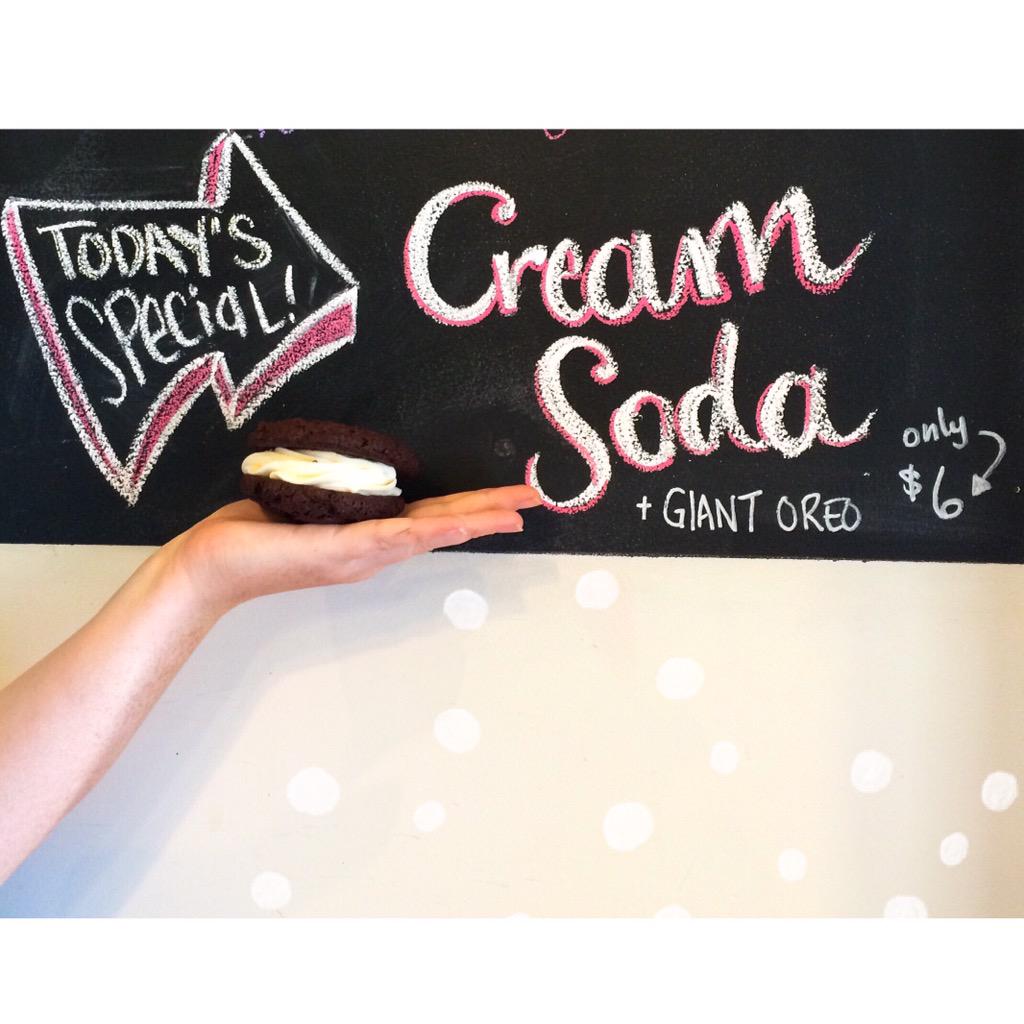 TODAY'S
SPECIAL!
Cream
Soda
+ GIANT OREO
only
$6